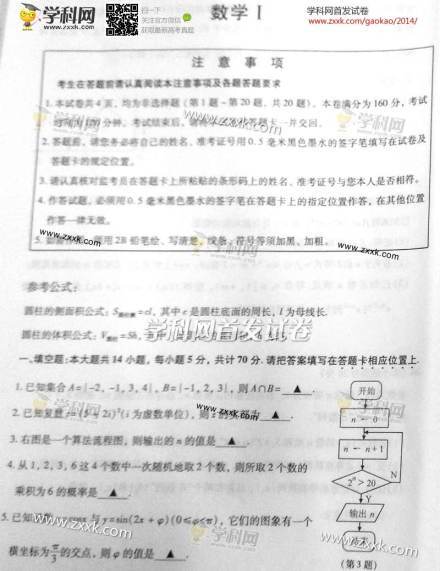 学科网
www.zxxk.com
扫一下
关注官方微信
获取最新高考真题
数学 I
学科网首发试卷
www.zxxk.com/gaokao/2014/
注 意 事 项
考生在答题前请认真阅读本注意事项及各题答题要求
1. 本试卷共4页, 均为非选择题 (第1题~第20题, 共20题). 本卷满分为160分, 考试
时间为120分钟. 考试结束后, 请将 答题卡一并交回.
2. 答题前, 请您务必将自己的姓名、准考证号用0.5毫米黑色墨水的签字笔填写在试卷及
答题卡的规定位置.
3. 请认真核对监考员在答题卡上所粘贴的条形码上的姓名、准考证号与您本人是否相符.
4. 作答试题, 必须用0.5毫米黑色墨水的签字笔在答题卡上的指定位置作答, 在其他位置
作答一律无效.
5. 如需作图, 须用2B铅笔绘、写清楚, 线条、符号等须加黑、加粗.
学科网
www.zxxk.com
参考公式:
圆柱的侧面积公式: S圆柱侧=cl, 其中c是圆柱底面的周长, l为母线长.
圆柱的体积公式: V圆柱=Sh,
学科网首发试卷
www.zxxk.com
一、填空题: 本大题共14小题, 每小题5分, 共计70分. 请把答案填写在答题卡相应位置上.
1. 已知集合A={-2, -1, 3, 4}, B={-1, 2, 3}, 则A∩B= ▲ .
2. 已知复数z=(5+2i)²(i为虚数单位), 则z的实部为 ▲ .
3. 右图是一个算法流程图, 则输出的n的值是 ▲ .
4. 从1, 2, 3, 6这4个数中一次随机地取2个数, 则所取2个数的
乘积为6的概率是 ▲ .
5. 已知函数y=cosx与y=sin(2x+φ)(0≤φ<π), 它们的图象有一个
横坐标为π/3的交点, 则φ的值是 ▲ .
开始
n ← 0
n ← n+1
2ⁿ>20
N
Y
输出n
结束
(第3题)